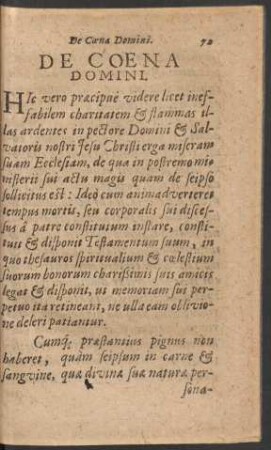 De Cœna Domini. 72
DE COENA
DOMINI.
HIc vero præcipuè videre licet inef-
fabilem charitatem & flammas il-
las ardentes in pectore Domini & Sal-
vatoris nostri Jesu Christi erga miseram
suam Ecclesiam, de qua in postremo mi-
nisterii sui actu magis quam de seipso
sollicitus est: Ideò cum animadverteret
tempus mortis, seu corporalis sui disces-
sus à patre constitutum instare, consti-
tuit & disponit Testamentum suum, in
quo thesauros spiritualium & cœlestium
suorum bonorum charissimis suis amicis
legat & disponit, ut memoriam sui per-
petuo ita retineant, ne ulla eam oblivio-
ne deleri patiantur.
Cumq; præstantius pignus non
haberet, quàm seipsum in carne &
sangvine, quæ divinæ suæ naturæ per-
sona-